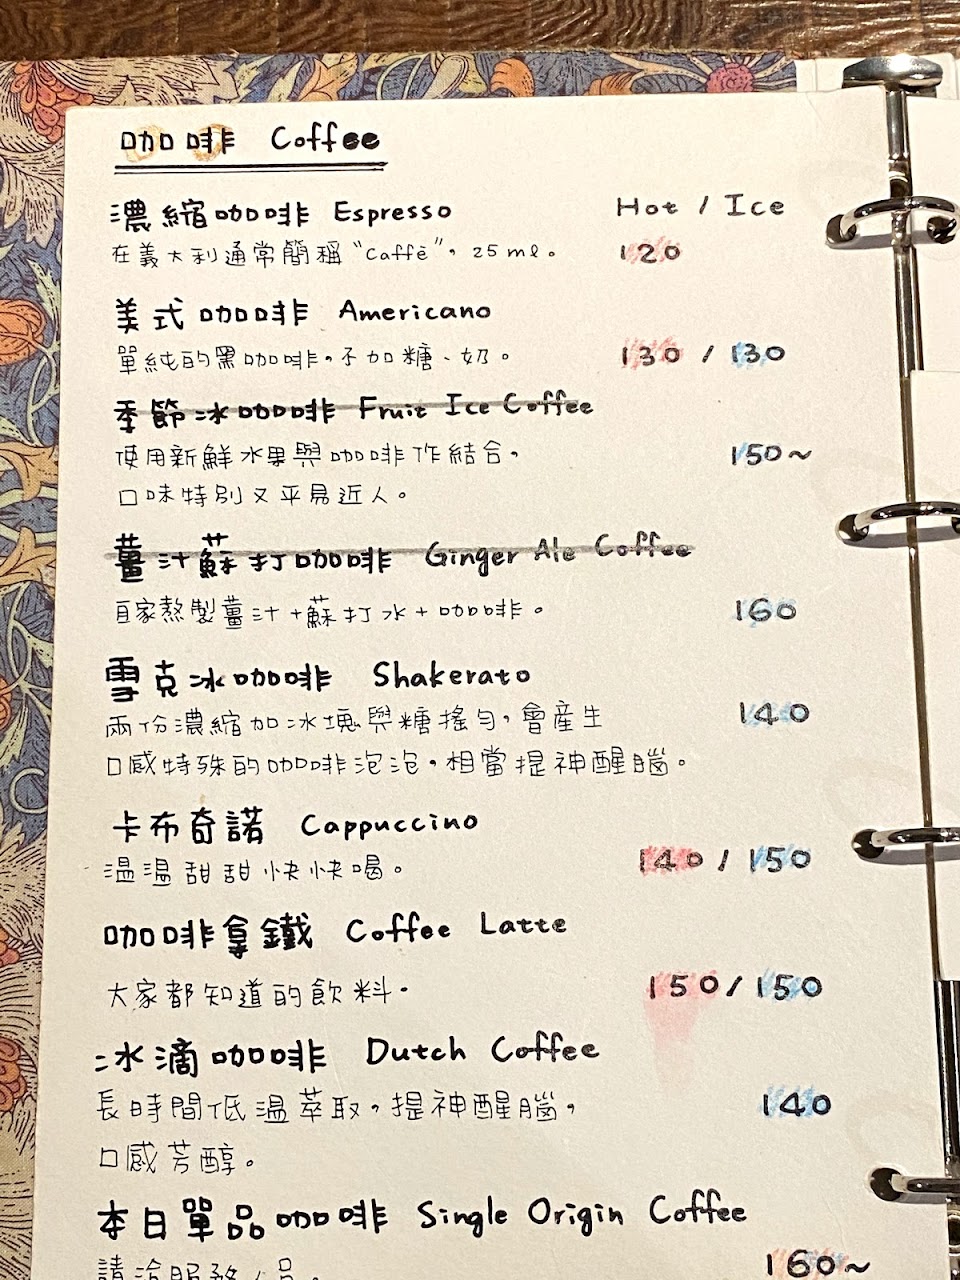 咖啡 Coffee
濃縮咖啡 Espresso Hot / Ice
在義大利通常簡稱“Caffè”，25ml。 120
美式咖啡 Americano
單純的黑咖啡，不加糖、奶。 130 / 130
季節冰咖啡 Fruit Ice Coffee
使用新鮮水果與咖啡作結合， 150~
口味特別又平易近人。
薑汁蘇打咖啡 Ginger Ale Coffee
自家熬製薑汁+蘇打水+咖啡。 160
雪克冰咖啡 Shakerato
兩份濃縮加冰塊與糖搖勻，會產生 140
口感特殊的咖啡泡泡，相當提神醒腦。
卡布奇諾 Cappuccino
溫溫甜甜快快喝。 140 / 150
咖啡拿鐵 Coffee Latte
大家都知道的飲料。 150 / 150
冰滴咖啡 Dutch Coffee
長時間低溫萃取，提神醒腦， 140
口感芳醇。
本日單品咖啡 Single Origin Coffee
請洽服務人員。 160~